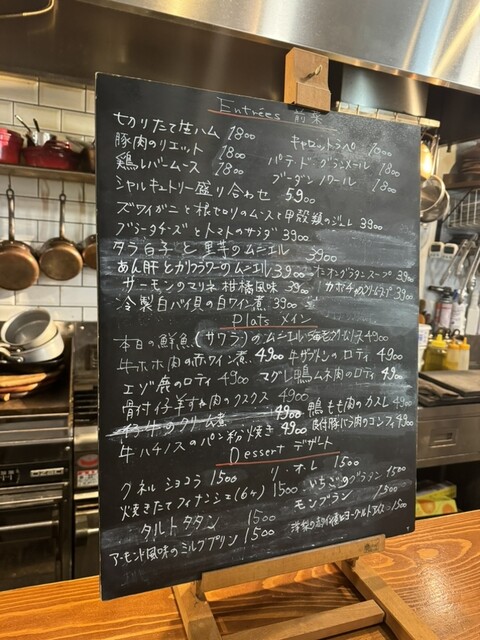 Entrées 前菜
切りたて生ハム 1800 キャロットラペ 1000
豚肉のリエット 1800 パテ・ド・グランメール 1800
鶏レバームース 1800 ブーダンノワール 1800
シャルキュトリー盛り合わせ 5900
ズワイガニと根セロリのムースと甲殻類のジュレ 3900
ブラータチーズとトマトのサラダ 3900
タラ白子と里芋のムニエル 3900
あん肝とカリフラワーのムニエル 3900 オニオングラタンスープ 3900
サーモンのマリネ 柑橘風味 3900 カボチャのクリームスープ 3900
冷製白バイ貝の白ワイン煮 3900
Plats メイン
本日の鮮魚(サワラ)のムニエル 海老クリームソース 4900
牛ホホ肉の赤ワイン煮 4900 牛ザブトンのロティ 4900
エゾ鹿のロティ 4900 マグレ鴨ムネ肉のロティ 4900
骨付仔羊すね肉のクスクス 4900
仔牛のクリーム煮 4900 鴨もも肉のカスレ 4900
牛ハチノスのパン粉焼き 4900 骨付豚バラ肉のコンフィ 4900
Dessert デザート
クネルショコラ 1500 リ・オ・レ 1500
焼きたてフィナンシェ(6ケ) 1500 いちごのグラタン 1500
タルトタタン 1500 モンブラン 1500
アーモンド風味のミルクプリン 1500 ヨーグルトアイス 1500